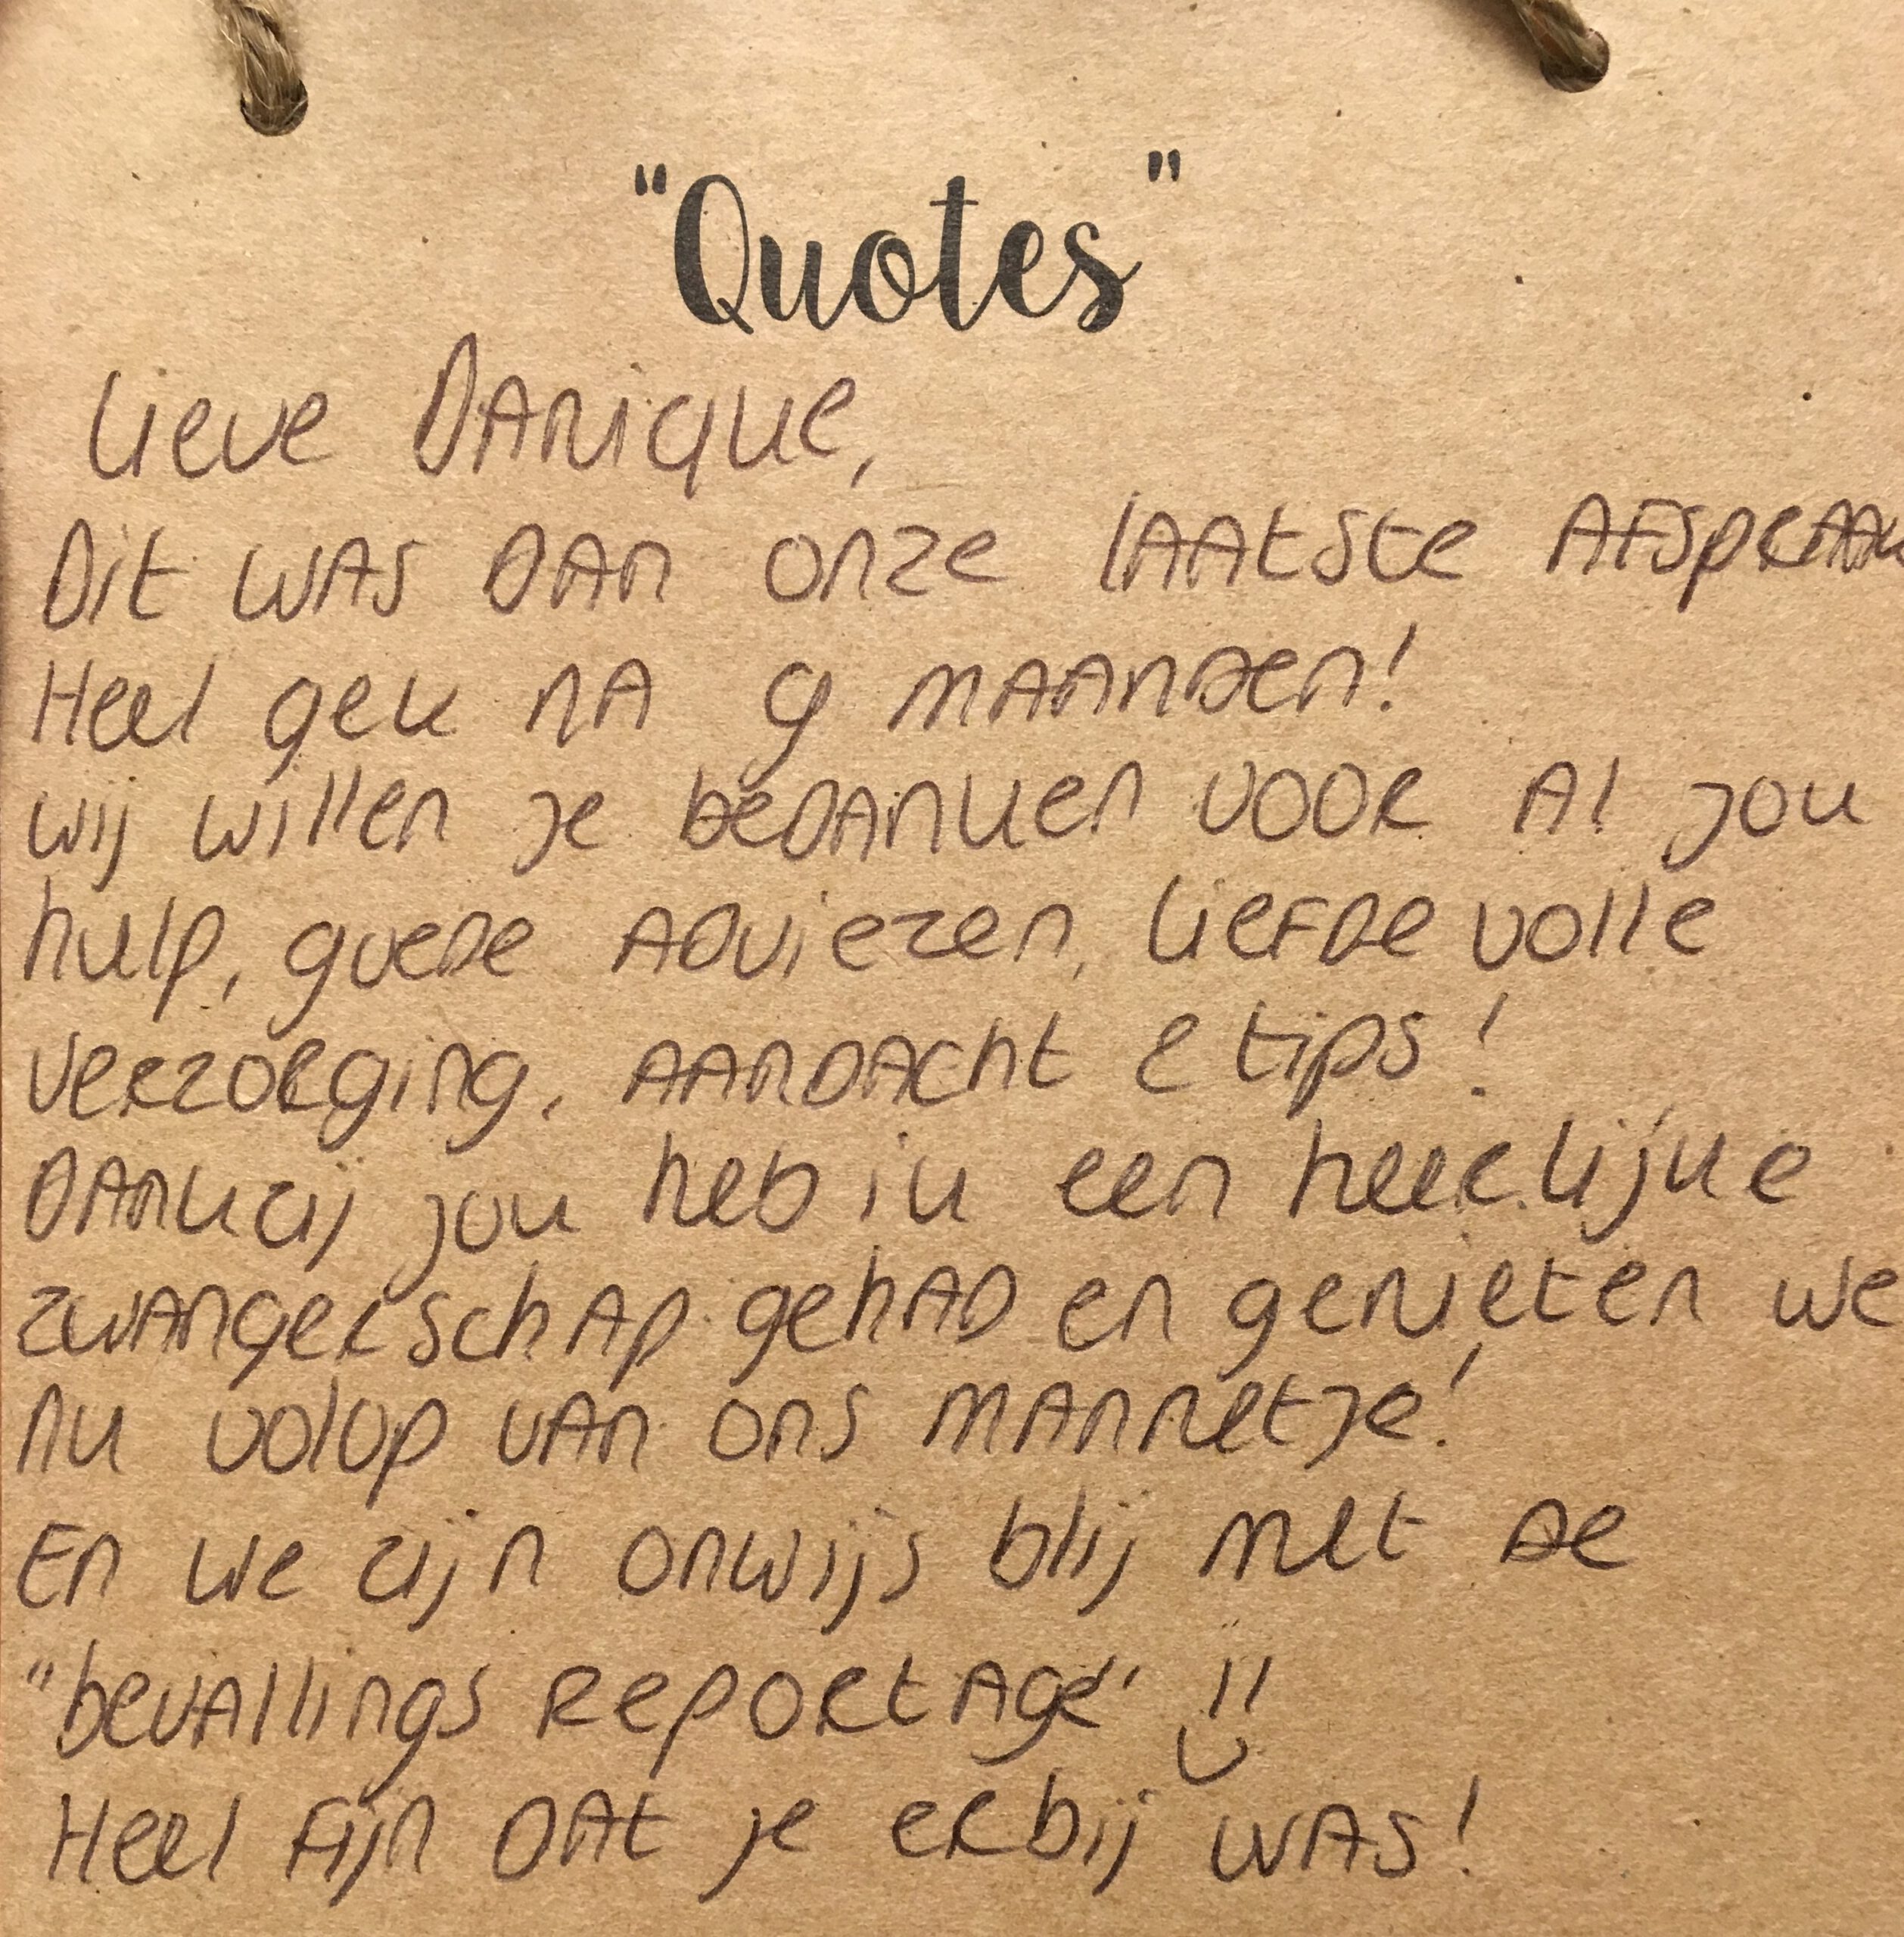 "Quotes"
Lieve Danique,
Dit was dan onze laatste afspraak
Heel gek na 9 maanden!
wij willen je bedanken voor al jou
hulp, goede adviezen, liefdevolle
verzorging, aandacht & tips!
Dankzij jou heb ik een heerlijke
zwangerschap gehad en genieten we
nu volop van ons mannetje!
En we zijn onwijs blij met de
"bevallings reportage" !!
Heel fijn dat je erbij was!